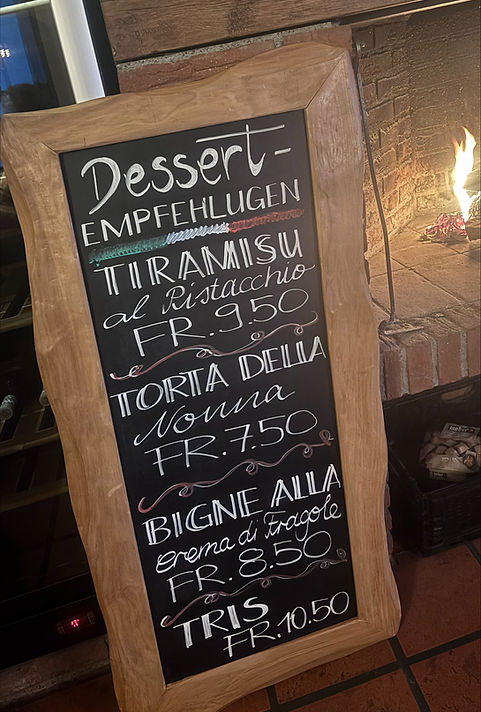 Dessert-
EMPFEHLUGEN
TIRAMISU
al Pistacchio
FR. 9.50
TORTA DELLA
Nonna
FR. 7.50
BIGNE ALLA
crema di Fragole
FR. 8.50
TRIS
FR. 10.50